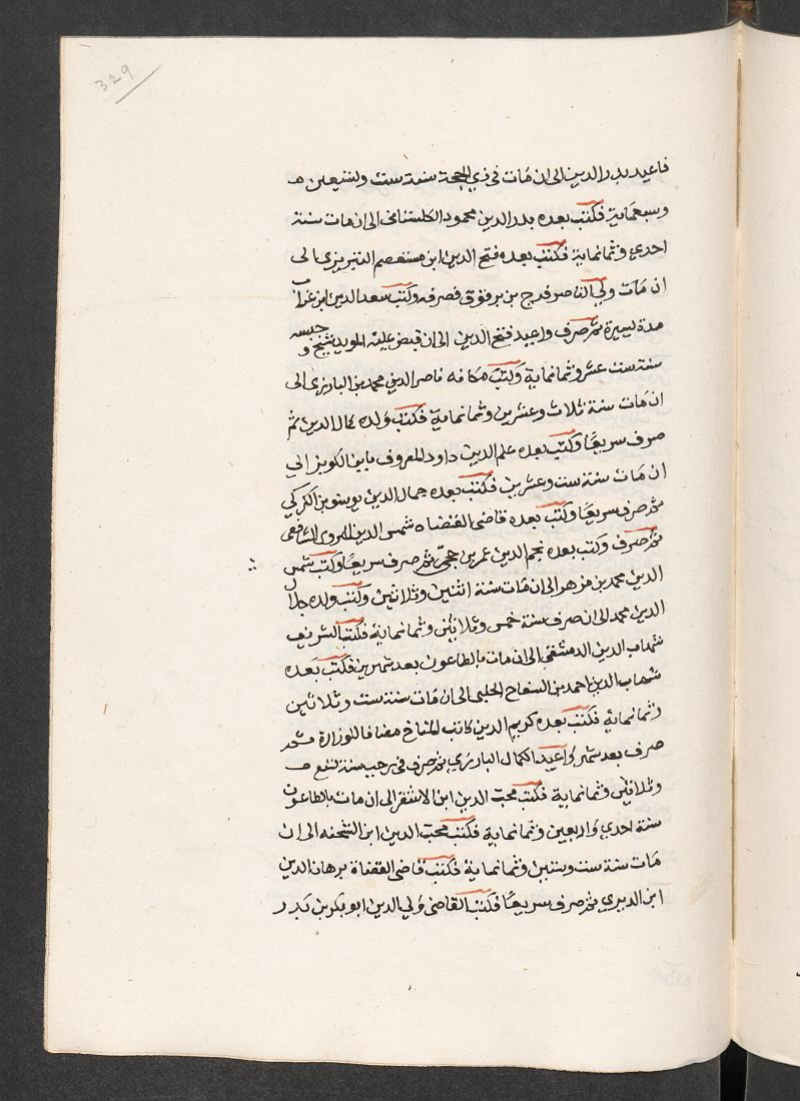 329
فاعيد بدر الدين الى ان مات في ذي الحجة سنة ست وتسعين
وسبعماية فكتب بعده بدر الدين محمود الكلستانى الى ان مات سنة
احدي وثمانماية فكتب بعده فتح الدين ابن مستعصم التبريزى الى
ان مات ولي الناصر فرج بن برقوق فصرفه وكتب سعد الدين ابن غراب
مدة يسيرة ثم صرف واعيد فتح الدين الى ان قبض عليه المويد شيخ وحبسه
سنة ست عشر وثمانماية وكتب مكانه ناصر الدين محمد بن البارزى الى
ان مات سنة ثلاث وعشرين وثمانماية فكتب ولده كمال الدين ثم
صرف سريعا وكتب بعده علم الدين داود المعروف بابن الكويز الي
ان مات سنة ست وعشرين فكتب بعده جمال الدين يوسف بن الكركي
ثم صرف سريعا وكتب بعده قاضى القضاه شمس الدين الهروى الشافعى
ثم صرف وكتب بعده نجم الدين عمر بن حجى ثم صرف سريعا وكتب شمس
الدين محمد بن مزهر الى ان مات سنة اثنتين وثلاثين وكتب ولده جلال
الدين محمد الى ان صرف سنة خمس وثلاثين وثمانماية فكتب الشريف
شهاب الدين الدمشقى الى ان مات بالطاعون بعد شهرين فكتب بعده
شهاب الدين احمد بن السفاح الحلبى الى ان مات سنة ست وثلاثين
وثمانماية فكتب بعده كريم الدين كاتب المناخ مضافا للوزارة ثم
صرف بعد شهر واعيد الكمال البارزي ثم صرف فى رجب سنة تسع
وثلاثين وثمانماية فكتب محب الدين ابن الاشقر الى ان مات بالطاعون
سنة احدي واربعين وثمانماية فكتب محب الدين ابن الشحنه الى ان
مات سنة ست وستين وثمانماية فكتب قاضى القضاة برهان الدين
ابن الديري ثم صرف سريعا فكتب القاضى ولي الدين ابو بكر بن بدر